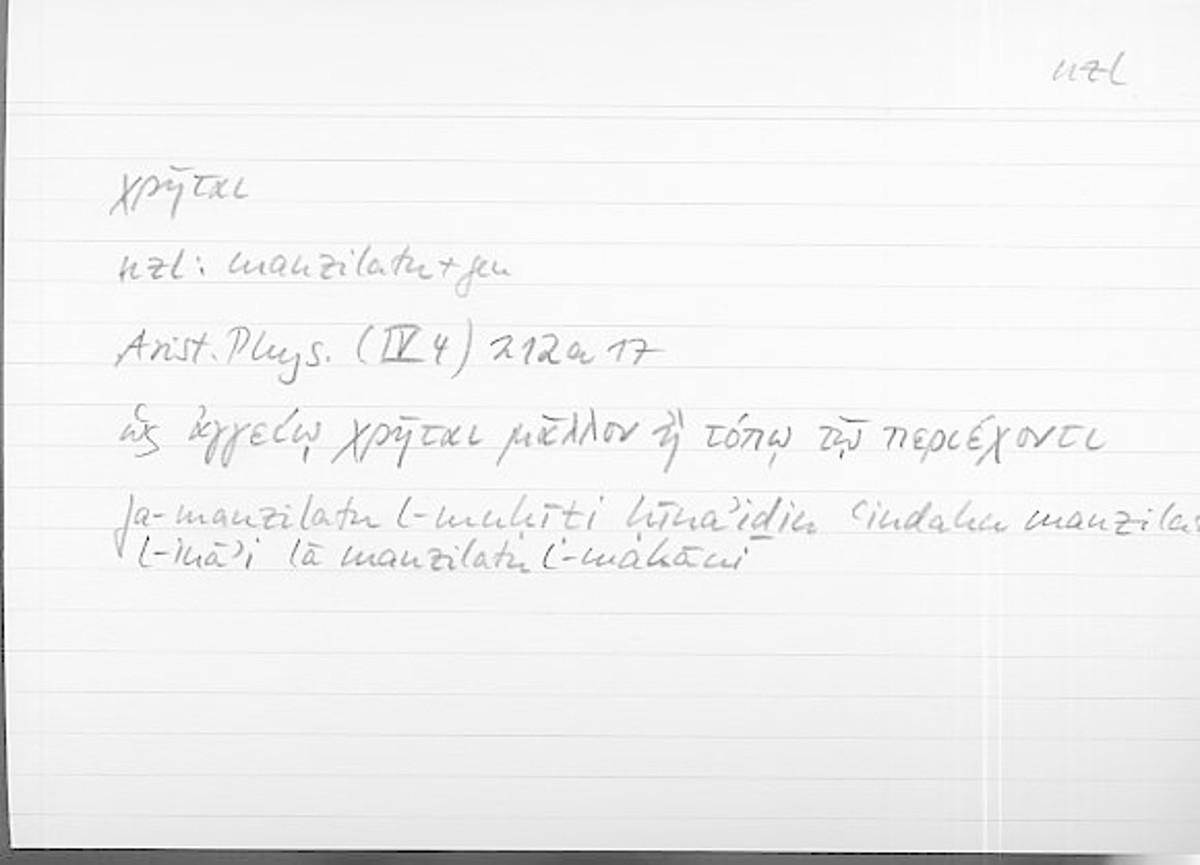 nzl
χρῆται
nzl: manzilatu + gen
Arist. Phys. (IV 4) 212a 17
ὡς ἀγγείῳ χρῆται μᾶλλον ἢ τόπῳ τῷ περιέχοντι
fa-manzilatu l-muḥīṭi ḥīnaʾiḏin ʿindahu manzila
l-ināʾi lā manzilatu l-makāni